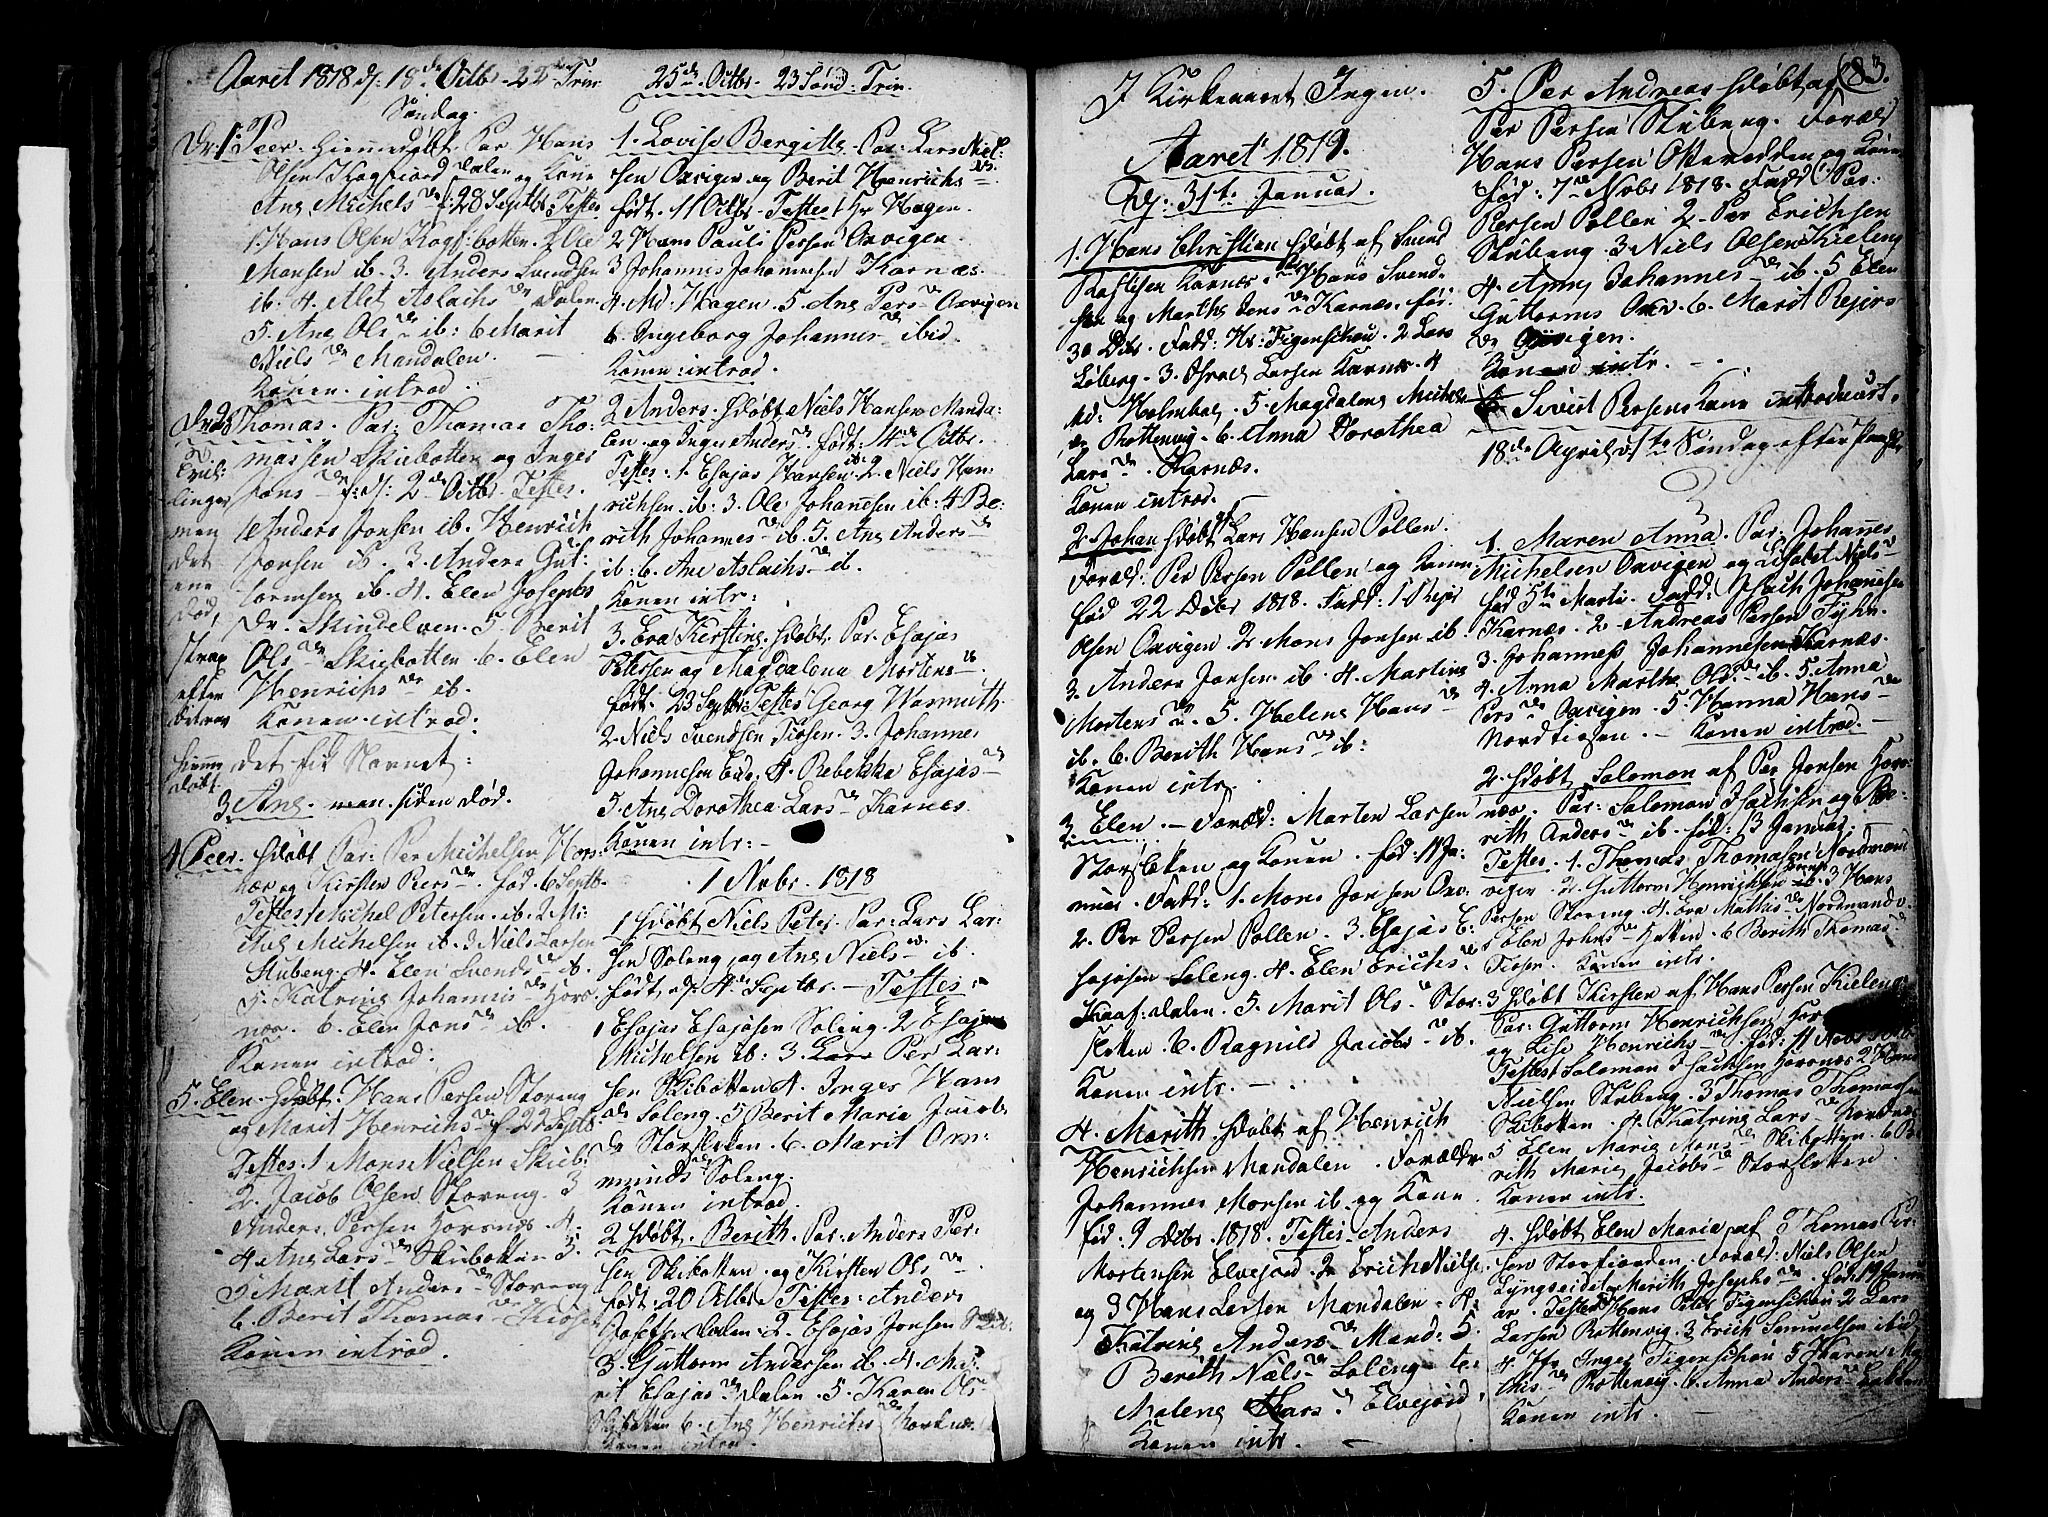 Aaret 1818 d: 18de Octbr. 22de Trin
Søndag.
1. Peer. hiemmedøbt Par Hans
Olsen Kaafiord Dalen og Kone
Ane Michels dr f: 28 Septbr: Testes.
1. Hans Olsen Kaaf: botten. 2 Ole
Monsen ib. 3. Anders Svendsen
ib: 4. Alet Aslachs dr Dalen.
5. Ane Ols dr ib: 6 Marit
Niels dr Mandalen.
Konen introd.
Thomas. Par: Thomas Tho-
massen Skiebotten og Inger
Jons dr f: d: 2de Octbr. Testes.
1 Anders Jonsen ib. Henrich
Jonsen ib. 3. Anders Gut-
tormsen ib. 4. Elen Josephs
Dr. Skindelven. 5. Berit
Ols dr Skiebotten. 6. Elen
Henrichs dr ib.
Konen introd:
2
Tvil-
linger
men
det
ene
død,
strax
efter
hiemme
døbt
det fik Navnet:
3. Ane. siden død.
4. Peer. hdøbt Par: Per Michelsen Hors-
nær og Kirsten Peers dr. fød. 6 Septb.
Testes 1 Michel Petersen ib. 2 Mi-
chel Michelsen ib. 3 Niels Larsen
Stubeng. 4. Elen Svends dr ib.
5. Katrine Johannis dr Hors-
næs. 6. Elen Jons dr ib.
Konen introd:
5. Elen. hdøbt. Hans Persen Storeng
og Marit Henrichs dr f. 22 Septb
Testes. 1 Mons Nielsen Skieb:
2. Jacob Olsen Storeng. 3
Anders Persen Horsnæs. 4.
4 Ane Lars dr Skibotten 5.
5 Marit Anders dr Storeng
6. Berit Thomas dr
Konen introd.
25de Octbr. 23 Sønd: Trin.
1. Lovise Bergitte. Par: Lars Niel-
sen Oxvigen og Berit Henrichs dr.
født. 11 Octbr. Testes 1 Hr Hagen.
2 Hans Pauli Persen Oxvigen
3 Johannis Johannesen Karnæs.
4. Md. Hagen. 5. Ane Pers dr Oxvigen
6. Ingeborg Johannes dr ibid.
Konen introd.
2 Anders. hdøbt Niels Hansen Manda-
len og Inger Anders dr født: 14de Octbr.
Testes: 1. Esajas Hansen ib. 2 Niels Hen-
richsen ib: 3. Ole Johannesen ib: 4 Be-
rith Johannes dr ib. 5. Ane Anders dr
ib: 6. Ane Aslachs dr ib.
Konen intr:
3. Eva Kirstine. hdøbt. Par. Esajas
Petersen og Magdalena Mortens dr.
født. 23 Septbr Testes Georg Wasmuth
2 Niels Svendsen Tiosen. 3. Johannes
Johannesen Eide. 4. Rebekka Esajas dr
5. Ane Dorothea Lars dr Karnes.
Konen intr:
1 Nvbr. 1818
1 hdøbt Niels Peter Par: Lars Lar-
sen Soleng og Ane Niels dr ib.
født, d: 4de Septbr. Testes:
1 Esajas Esajasen Soleng. 2 Esajas
Michelsen ib: 3. Per Lar-
sen Skibotten 4. Inger Hans
dr Soleng. 5 Berit Maria Jacobs
Dr Storsletten. 6. Marit Om-
munds dr Soleng.
Konen introd.
2 hdøbt. Berith. Par: Anders Per-
sen Skibotten og Kirsten Ols dr
født: 20 Octbr Testes: Anders
Josefsen Dalen. 2. Esajas Jonsen Skib:
3. Guttorm Andersen ib. 4. Ma-
rit Esajas dr Dalen. 5. Karen Ols dr
Skibotten 6. Ane Henrichs dr
Konen introd.
83.
I Kirkeaaret Ingen.
Aaret 1819.
Dj: 31te Januar.
1. Hans Christian hdøbt af Svend
Karnæs. Par Hans Svend-
sen og Marthe Jens dr Karnæs. fød:
30 Dcbr. Fadd: Hr: Figenschou. 2 Lars
Løberg. 3. Israel Larsen Karnæs. 4
Md: Holmboe. 5. Magdalena Michels
dr Rottenvig. 6. Anna Dorothea
Lars dr Karnæs.
Konen introd.
2. Johan hdøbt af Lars Hansen Pollen.
Foræld: Per Persen Pollen og Konen
fød 22 Dcbr 1818. Fadd: 1. Rejer
Olsen Oxvigen. 2. Mons Jonsen ib.
3. Anders Jonsen ib. 4. Martine
Mortens dr. 5. Helene Hans dr
ib. 6. Berith Hans dr ib:
Konen intr.
3. Elen. Foræld: Morten Larsen
Storsletten og Konen. fød. 11 Ja-
nuar. Fadd: 1. Mons Jonsen Oxv.
2. Per Persen Pollen. 3. Esajas E-
sajasen Soleng. 4. Elen Erichs dr
Kaaf: dalen. 5. Marit Ols dr Stor-
sletten. 6. Ragnild Jacobs dr ib
Konen intr.
4. Marith. hdøbt af Henrich
Henrichsen Mandalen. Forældre
Johannes Monsen ib og Konen.
fød. 9 Dcbr. 1818. Testes Anders
Mortensen Elvejord. 2 Erich Nielsen
og 3 Hans Larsen Mandalen. 4.
Katrine Anders dr Mand: 5.
Berith Niels dr Soleng
Malene Lars dr Elvejord
Konen intr.
5. Per Andreas hdøbt af
Per Persen Stubeng. Foræld
Hans Persen og Konen
fød: 7de Nvbr 1818. Fadd: 1. Per
Persen Pollen 2. Per Erichsen
Stubeng. 3 Niels Olsen Kieleng
4. Anne Johannes dr ib. 5 Elen
Guttorms Oxv. 6. Marit Rejers
Dr Oxvigen.
Konen intr.
Sivert Persens Kone introducert.
18de April 1te Søndag efter Paaske
1. Maren Anna. Par. Johannes
Michelsen Oxvigen og Lisebet Niels dr
fød 5te Marti. Fadd: 1 Isach Johannesen
Karnæs. 2. Andreas Persen
3. Johannes Johannesen Karnæs.
4. Anna Marthe Ols dr ib. 5. Anna
Pers dr Oxvigen. 5. Hanna Hans dr
Nordtiosen. Konen introd.
2. hdøbt Salomon af Per Jonsen Hors-
næs. Par: Salomon Isachsen og Be-
rith Anders dr ib. fød: 13 Januar.
Testes. 1. Thomas Thomasen Nordmand-
vigen. 2. Guttorm Henrichsen ib. 3 Hans
Persen Storeng. 4. Eva Mathis dr Nordmandv.
5 Elen Johns dr Hatten. 6 Berith Thomas dr
Tiosen. Konen intr.
3. hdøbt Kirsten af Hans Persen Kieleng.
Par: Guttorm Henrichsen Hors
og Lise Henrichs dr fød: 11 Nvbr 1818
Testes 1 Salomon Isachsen Horsnæs 2 Hans
Nielsen Stubeng. 3 Thomas Thomasen
Skibotten. 4. Katrine Lars dr
5 Elen Maria Mons dr Skibotten 6 Be-
rith Maria Jacobs dr Storsletten.
Konen intr.
4. hdøbt Elen Maria af Thomas Per-
sen Storfiorden. Foræld: Niels Olsen
Lyngseidet Marith Josephs dr. fød: 19 Janu-
ar. Testes 1 Hans Peter Figenschou 2 Lars
Larsen Rottenvig. 3 Erich Samuelsen ibid
4. Jfr Inger Figenschou 5 Maren Ma-
this dr Rottenvig. 6 Anna Anders dr
Konen intr.